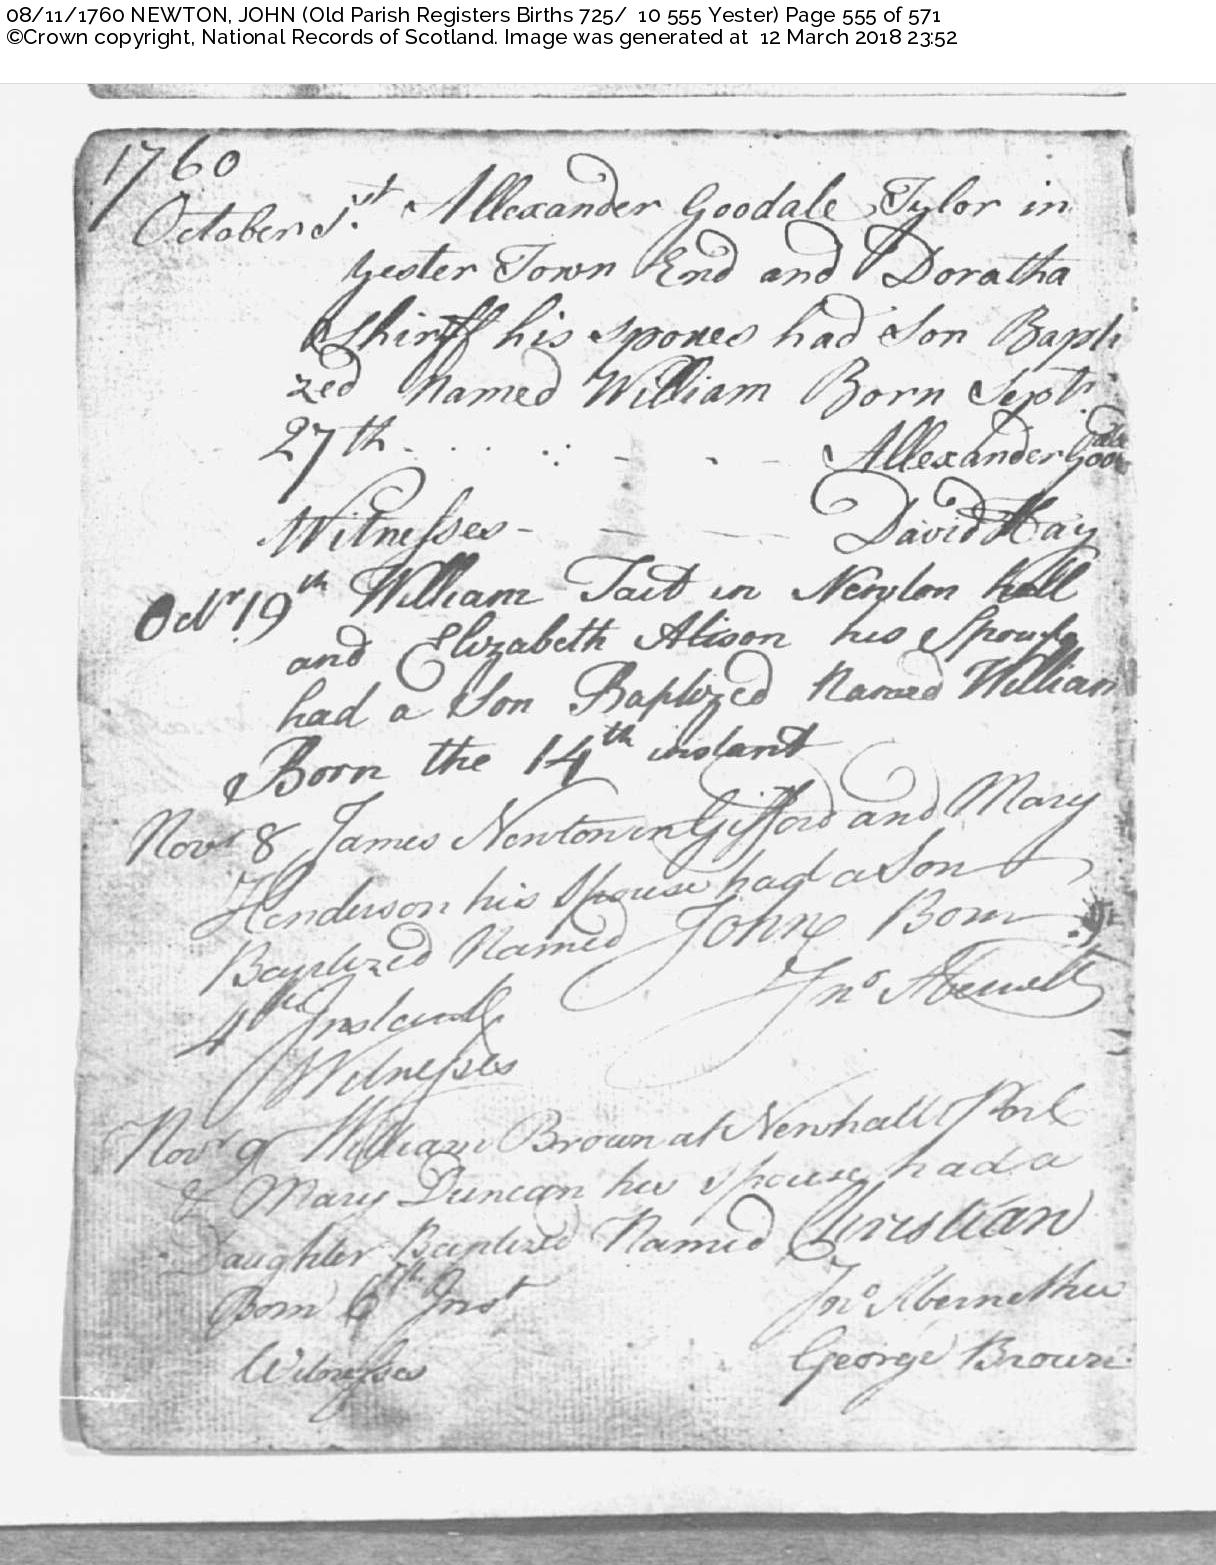 08/11/1760 NEWTON, JOHN (Old Parish Registers Births 725/ 10 555 Yester) Page 555 of 571
©Crown copyright, National Records of Scotland. Image was generated at 12 March 2018 23:52
1760
October 1st Allexander Goodale Tylor in
Yester Town End and Doratha
Shirff his spoues had Son Bapti
zed Named William Born Septr
27th Allexander Goodale
Witnesses - David Hay
Octr 19th William Tait in Newton hall
and Elizabeth Alison his Spouse
had a Son Baptized Named William
Born the 14th instant
Novr 8 James Newton in Gifford and Mary
Henderson his Spouse had a Son
Baptized Named John Born
4th Instant Jno
Witnesses
Novr 9 William Brown at Newhall Port
& Mary Duncan his spouse had a
Daughter Baptized Named Christian
Born 6th Inst Jno Abernethie
Witnesses George Brown